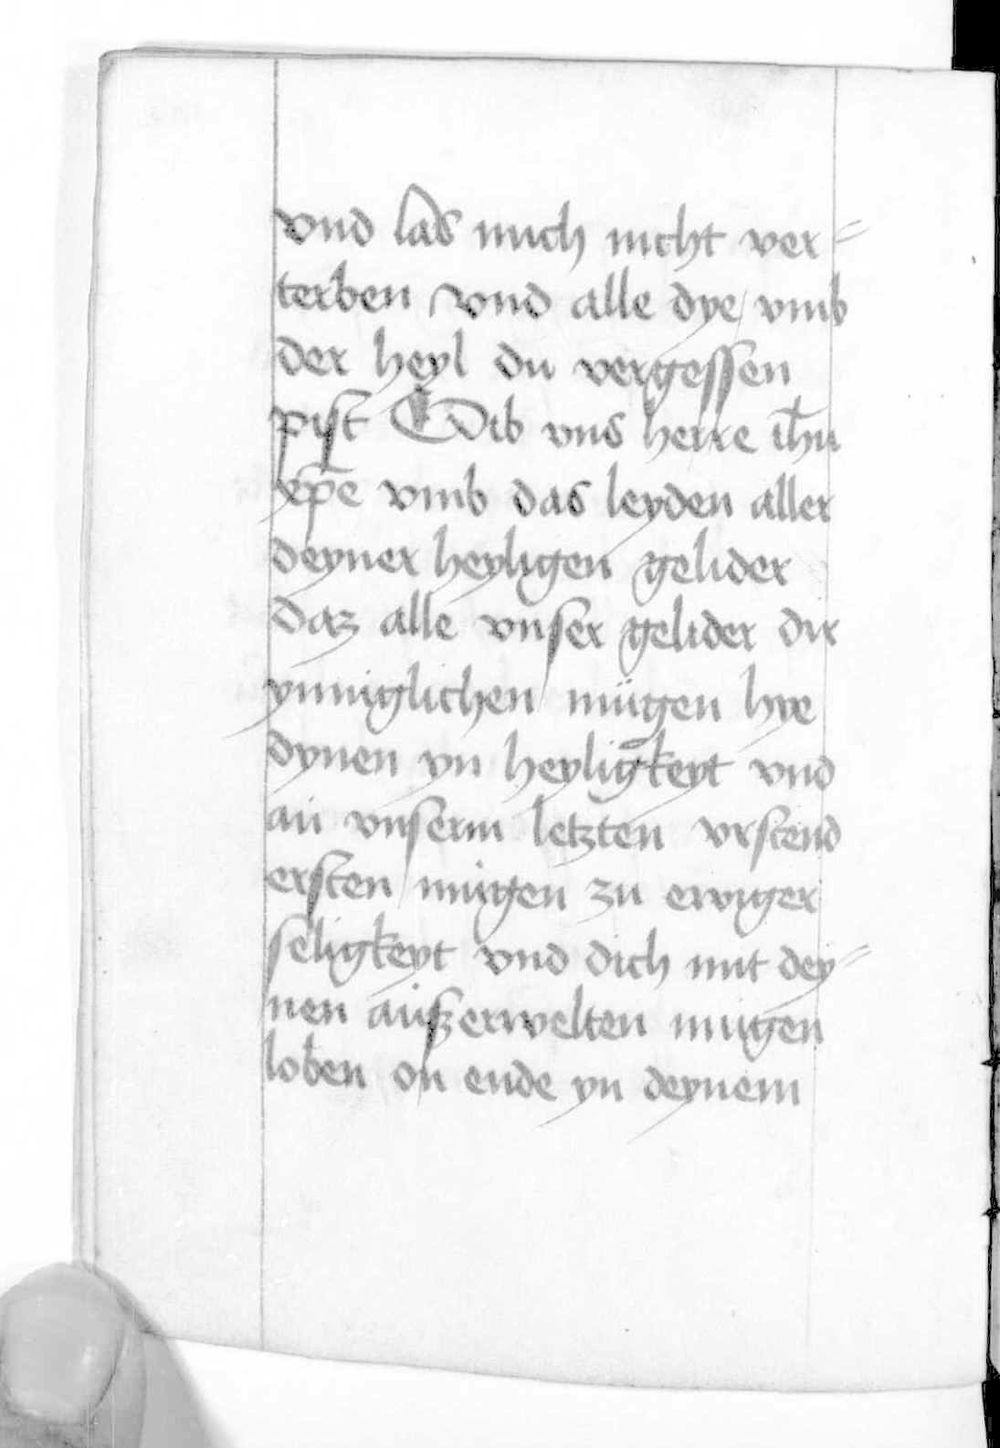 vnd las mich nicht ver=
terben vnd alle dye vmb
der heyl du vergessen
pist Gib vns herre ihu
xpe vmb das leyden aller
deyner heyligen gelider
daz alle vnser gelider dir
ynniglichen mügen hye
dynen yn heyligkeyt vnd
an vnserm letzten vrstend
ersten mügen zu ewiger
seligkeyt vnd dich mit dey=
nen außerwelten mugen
loben on ende yn deynem